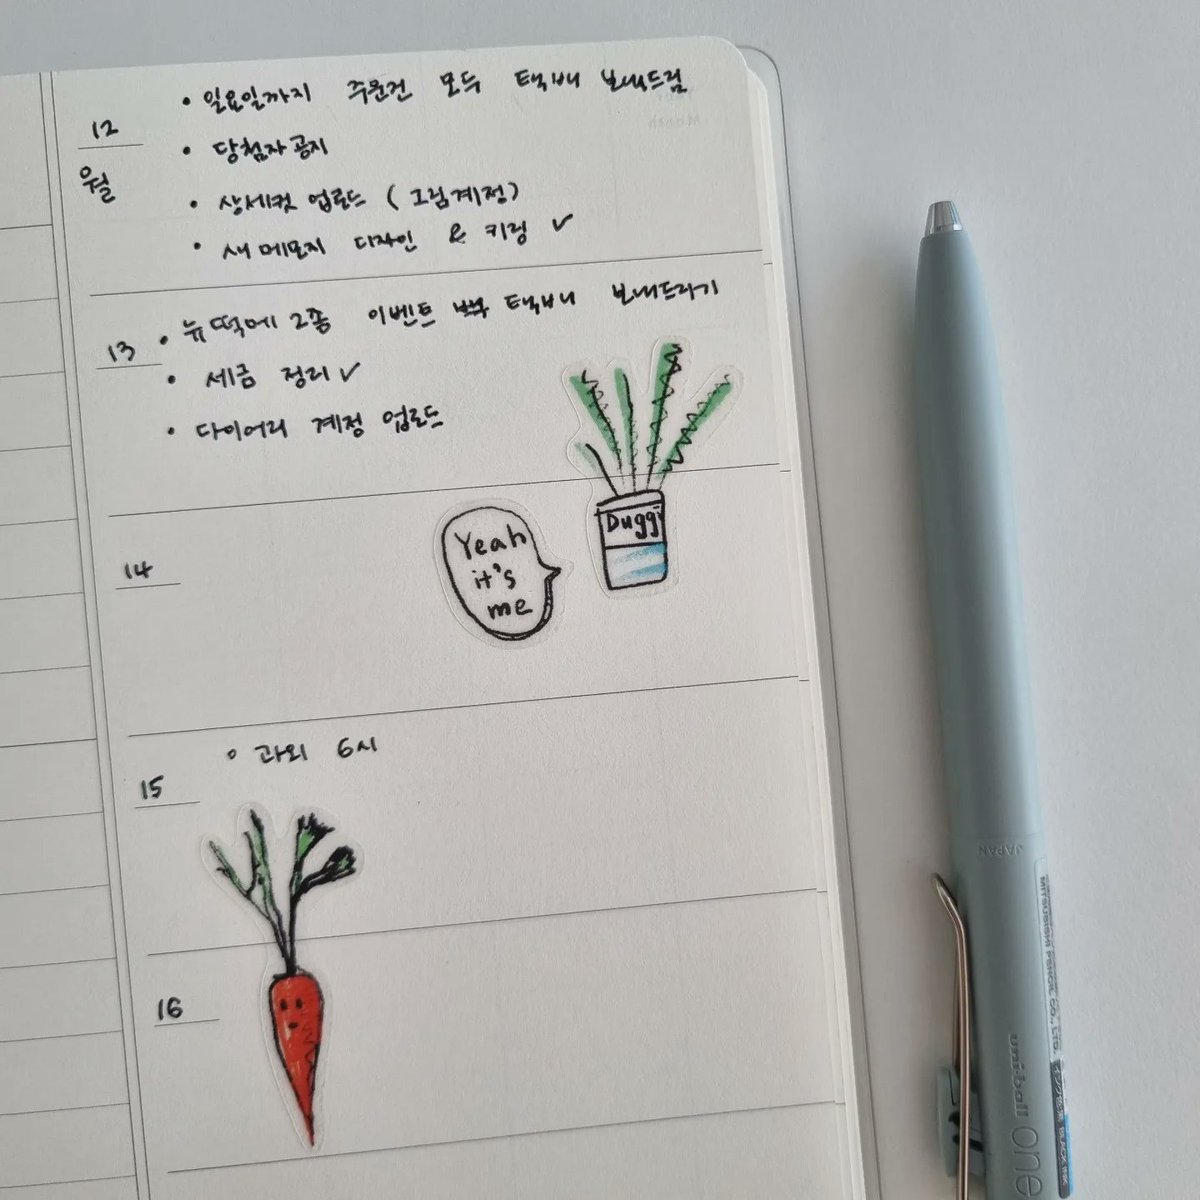 12
월
• 일요일까지 주문건 모두 택배 보내드림
• 당첨자 공지
• 상세컷 업로드 (그림계정)
• 새 메모지 디자인 & 키링 ✓
13
• 뉴떡메 2종 이벤트 택배 보내드리기
• 세금 정리 ✓
• 다이어리 계정 업로드
Duggy
14
Yeah
it's
me
15
• 과외 6시
16
JAPAN
MITSUBISHI PENCIL CO., LTD.
uni-ball one
BLACK INK